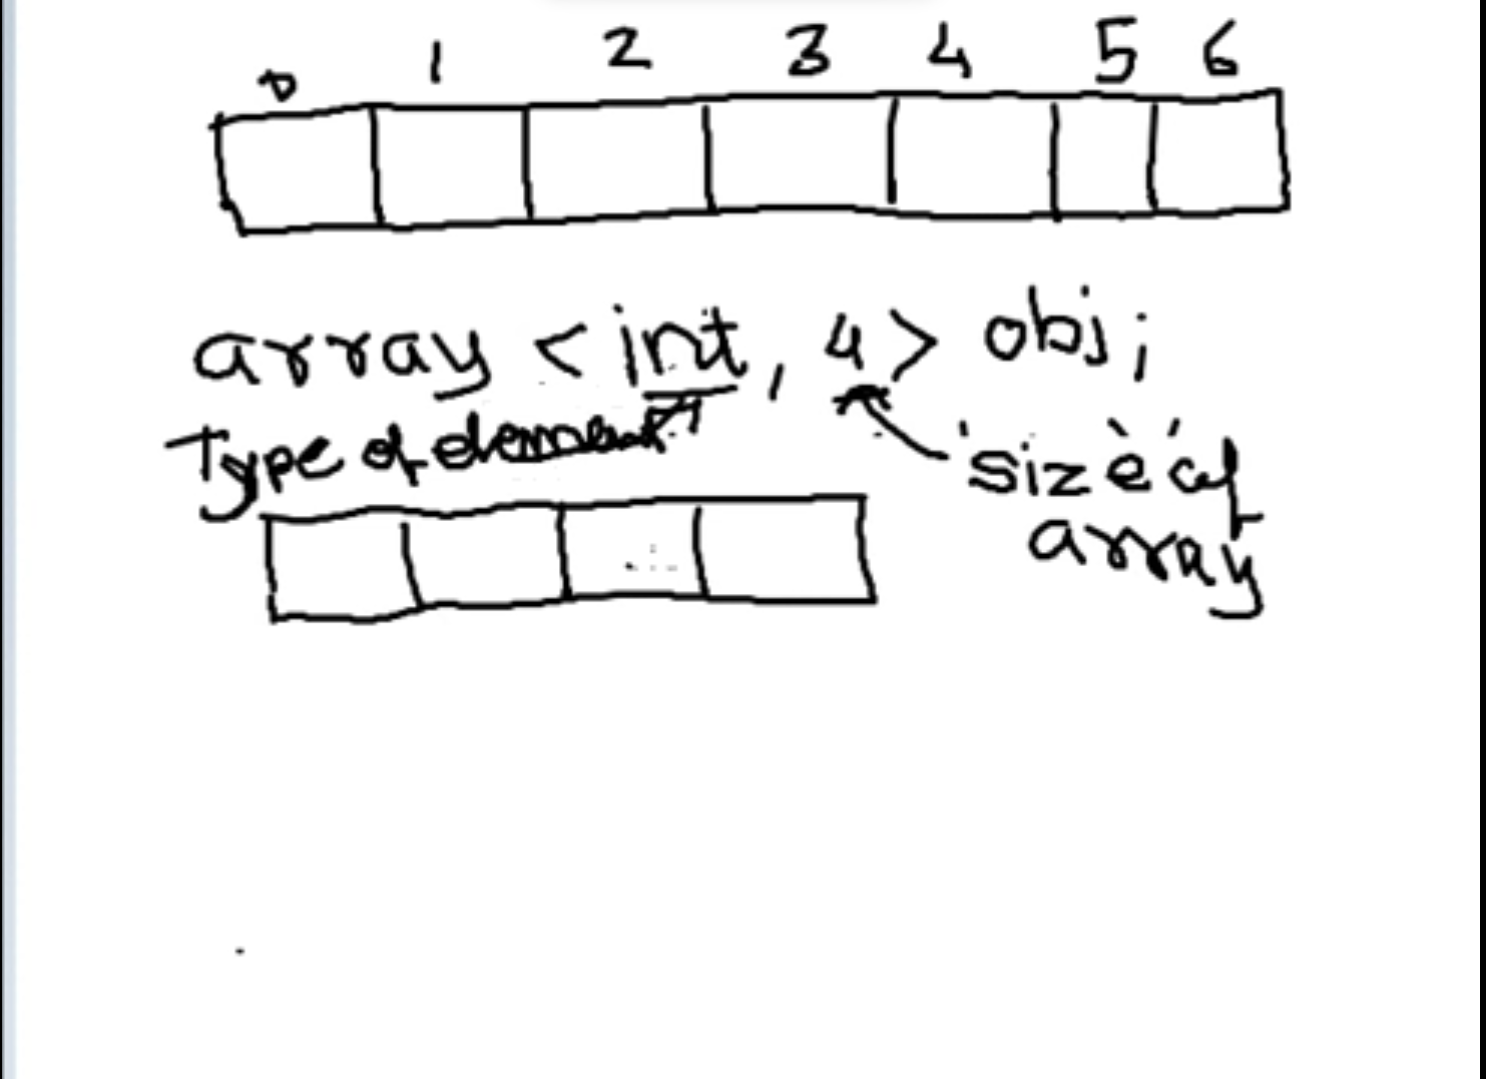 0 1 2 3 4 5 6
array <int, 4> obj;
Type of element
size of
array